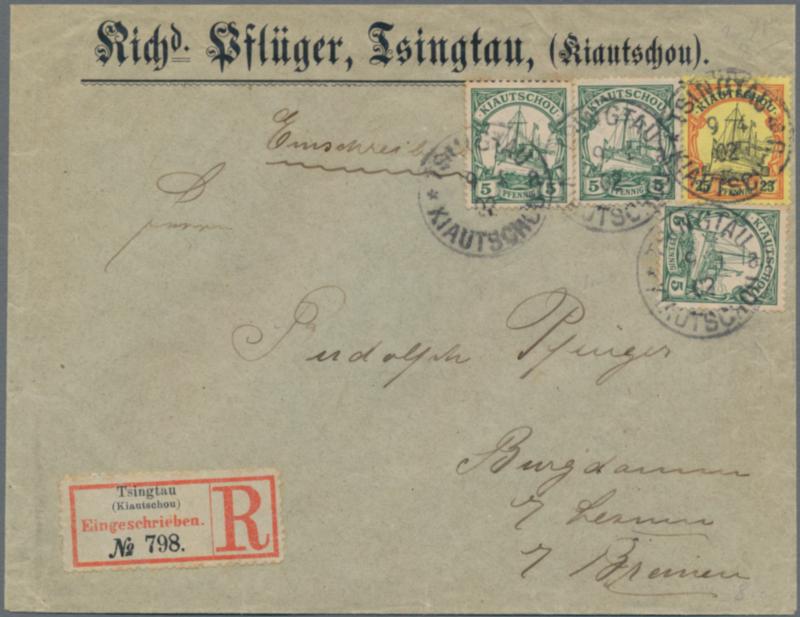 Richd. Pflüger, Tsingtau, (Kiautschou).
KIAUTSCHOU
5 PFENNIG 5
KIAUTSCHOU
5 PFENNIG 5
KIAUTSCHOU
25 PFENNIG 25
KIAUTSCHOU
5 PFENNIG
TSINGTAU
KIAUTSCHOU
TSINGTAU
9 4
02
KIAUTSCHOU
TSINGTAU
02
KIAUTSCHOU
Einschreiben
Herrn
Rudolph Pflüger
Burgdamm
b/ Lesum
b/ Bremen
Tsingtau
(Kiautschou)
Eingeschrieben.
№ 798.
R